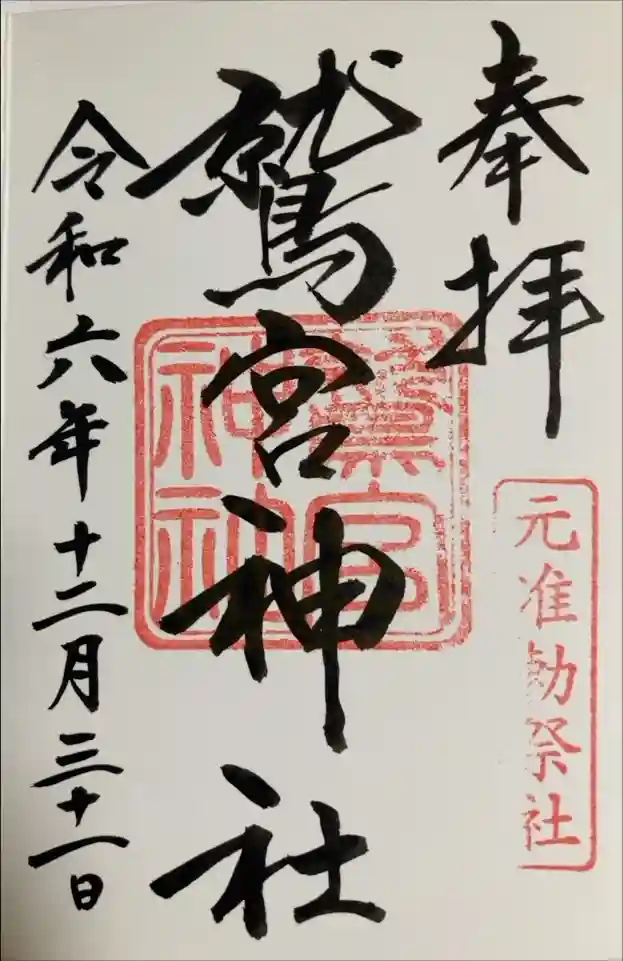 奉拝
元准勅祭社
鷲宮神社
鷲宮
神社
令和六年十二月三十一日